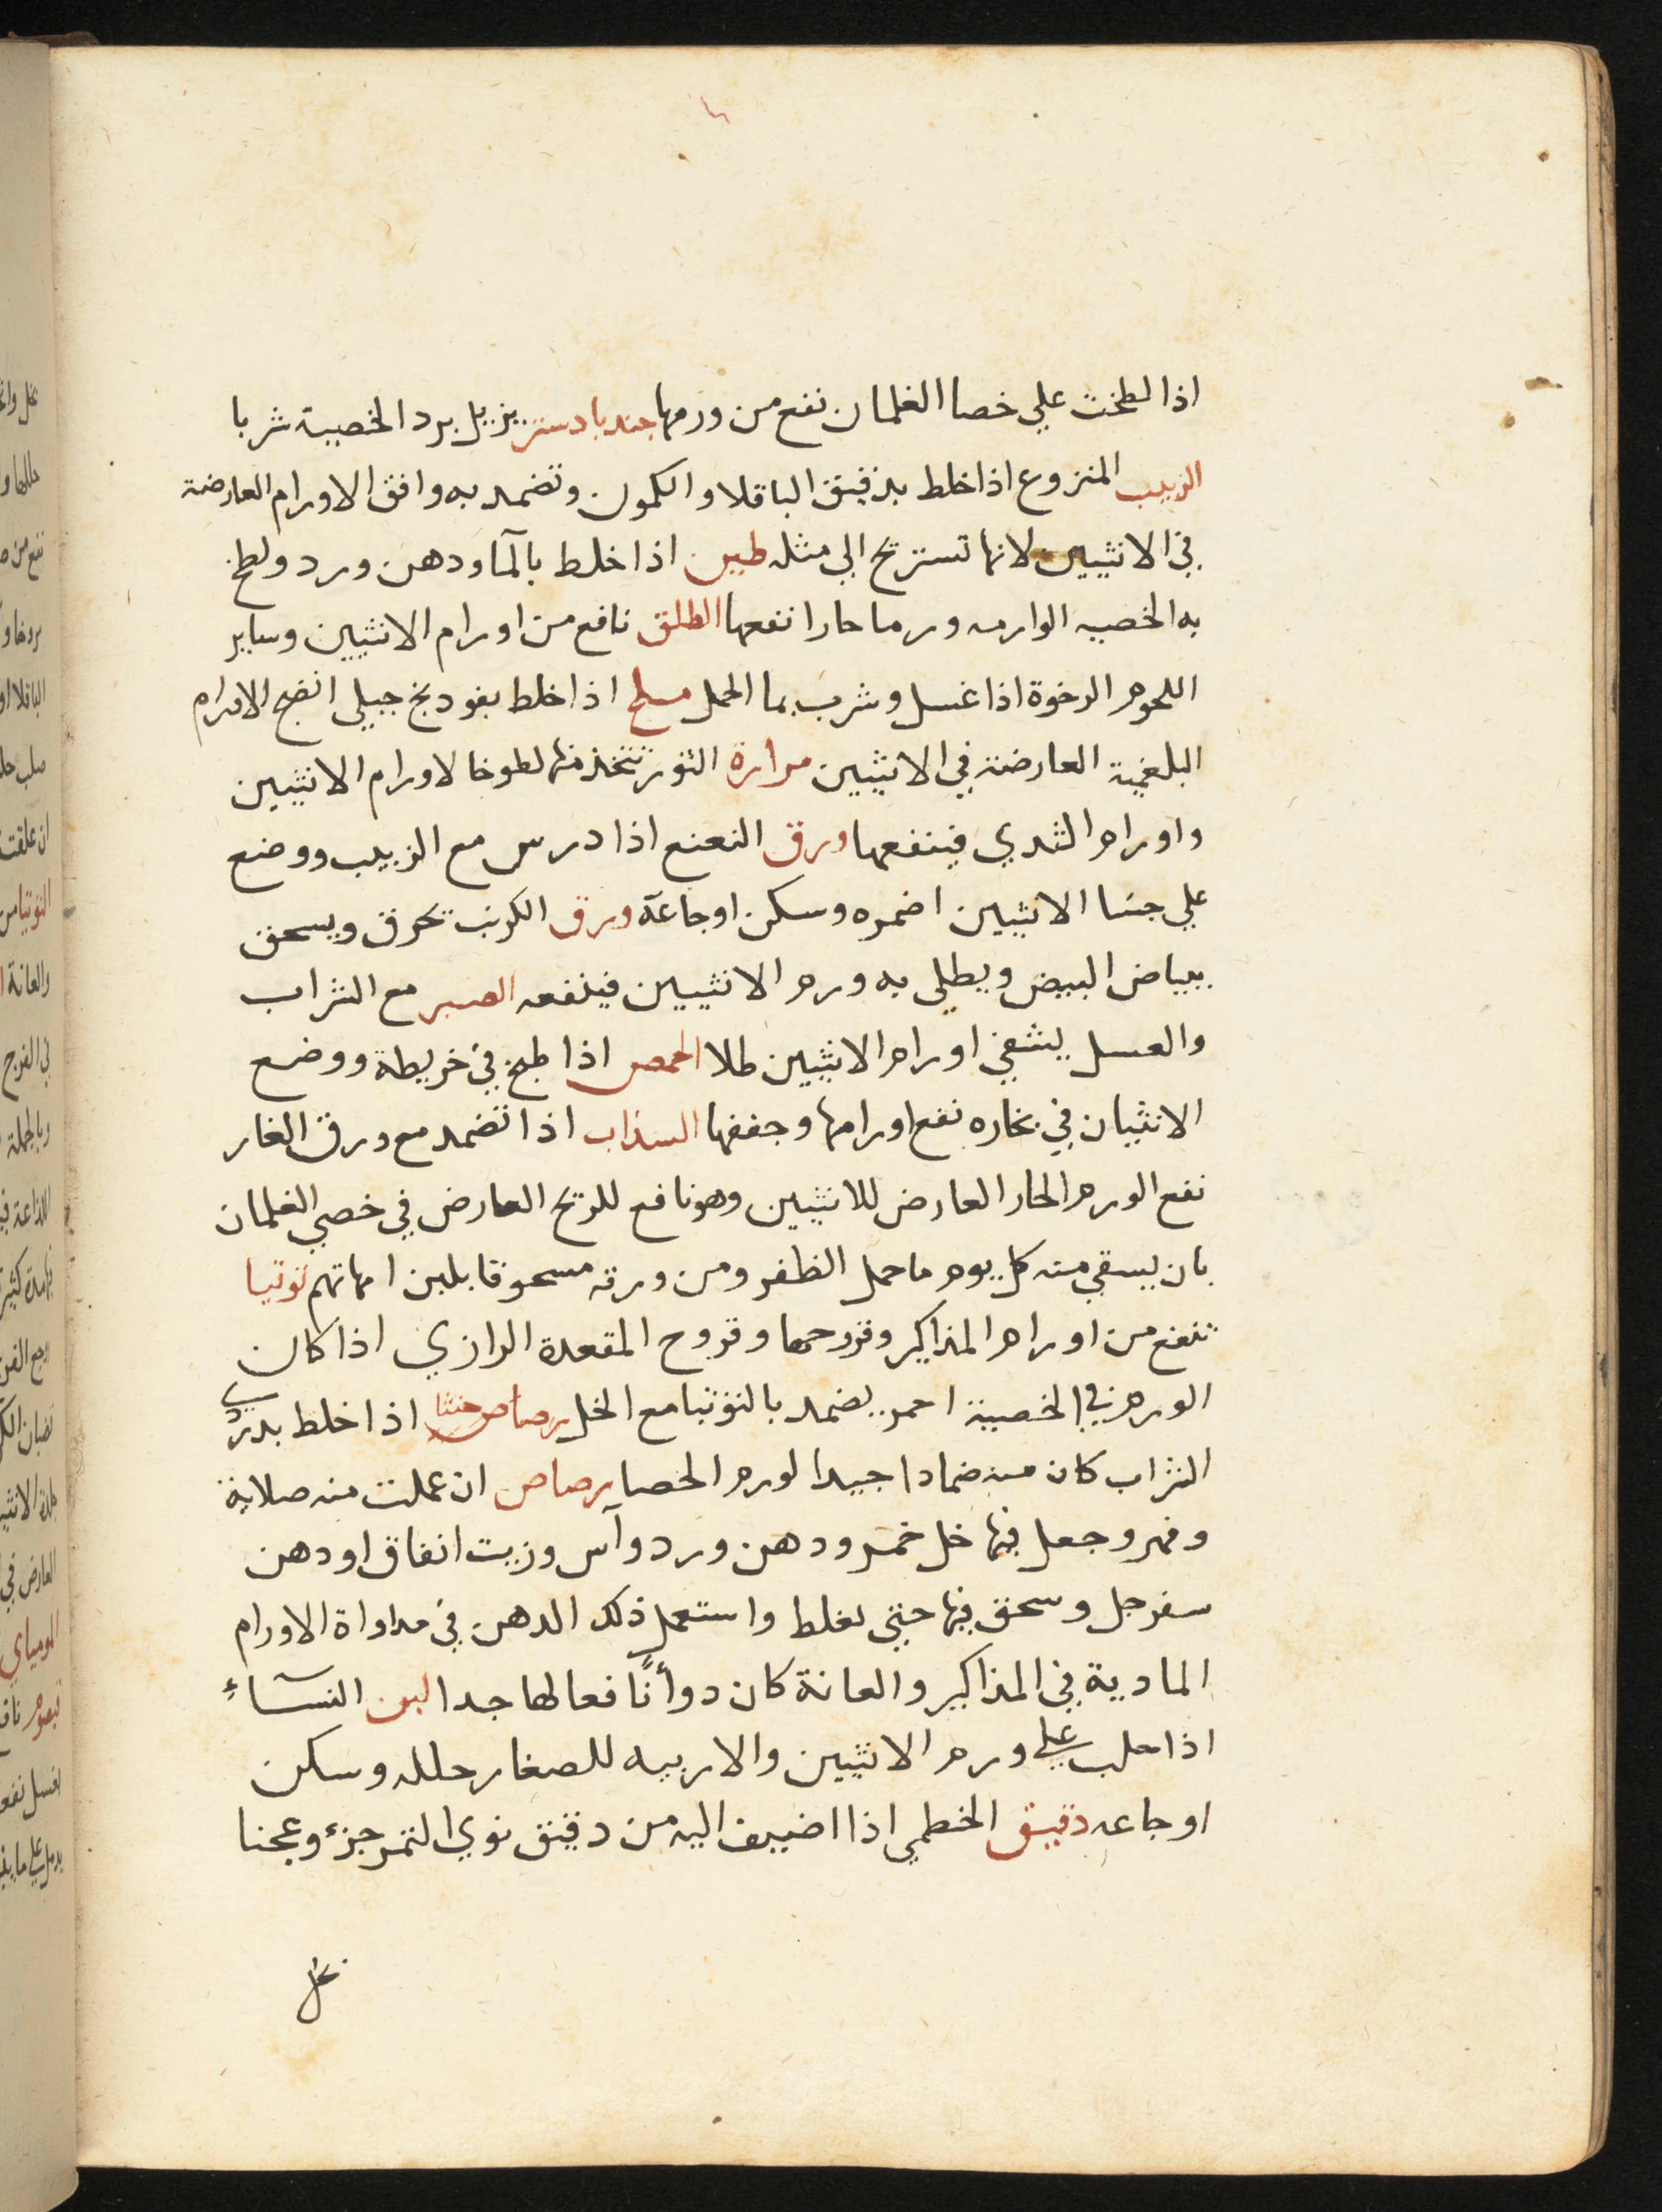 اذا لطخت علي خصا الغلمان نفع من ورمها جند بادستر يزيل برد الخصية شربا
الزبيب المنزوع اذا خلط بدقيق الباقلا والكمون وتضمد به وافق الاورام العارضة
في الانثيين لانها تستريح الي مثله طين اذا خلط بالمآ ودهن ورد ولطخ
به الخصيه الوارمه ورما حارا نفعها الطلق نافع من اورام الانثيين وساير
اللحوم الرخوة اذا غسل وشرب بما الحمل مسلح اذا خلط بفودنج جبلي انضج الاورام
البلغمية العارضة في الانثيين مرارة الثور تتخذ منها لطوخا لاورام الانثيين
واورام الثدي فينفعها ورق النعنع اذا درس مع الزبيب ووضع
علي جسا الانثيين اضمره وسكن اوجاعه ورق الكرنب تحرق ويسحق
ببياض البيض ويطلي به ورم الانثيين فينفعه الصبر مع الشراب
والعسل يشفي اورام الانثيين طلا الحمص اذا طبخ في خريطة ووضع
الانثيان في بخاره نفع اورامها وجففها السذاب اذا تضمد مع ورق الغار
نفع الورم الحار العارض للانثيين وهو نافع للريح العارض في خصي الغلمان
بان يسقي منه كل يوم ما حمل الظفر ومن ورقه مسحوقا بلبن امهاتهم توتيا
تنفع من اورام المذاكير وقروحها وقروح المقعدة الرازي اذا كان
الورم في الخصية احمر يضمد بالتوتيا مع الخل رصاص خنثا اذا خلط بدردي
الشراب كان منه ضمادا جيدا لورم الخصا رصاص ان عملت منه صلاية
وفهر وجعل فيها خل خمر ودهن ورد وآس وزيت انفاق او دهن
سفرجل وسحق فيها حتي يغلظ واستعمل ذلك الدهن في مداواة الاورام
المادية في المذاكير والعانة كان دوأ نافعا لها جدا لبن النسآء
اذا حلب علي ورم الانثيين والاربيه للصغار حلله وسكن
اوجاعه دقيق الخطمي اذا اضيف اليه من دقيق نوي التمر جزء وعجنا
بخل